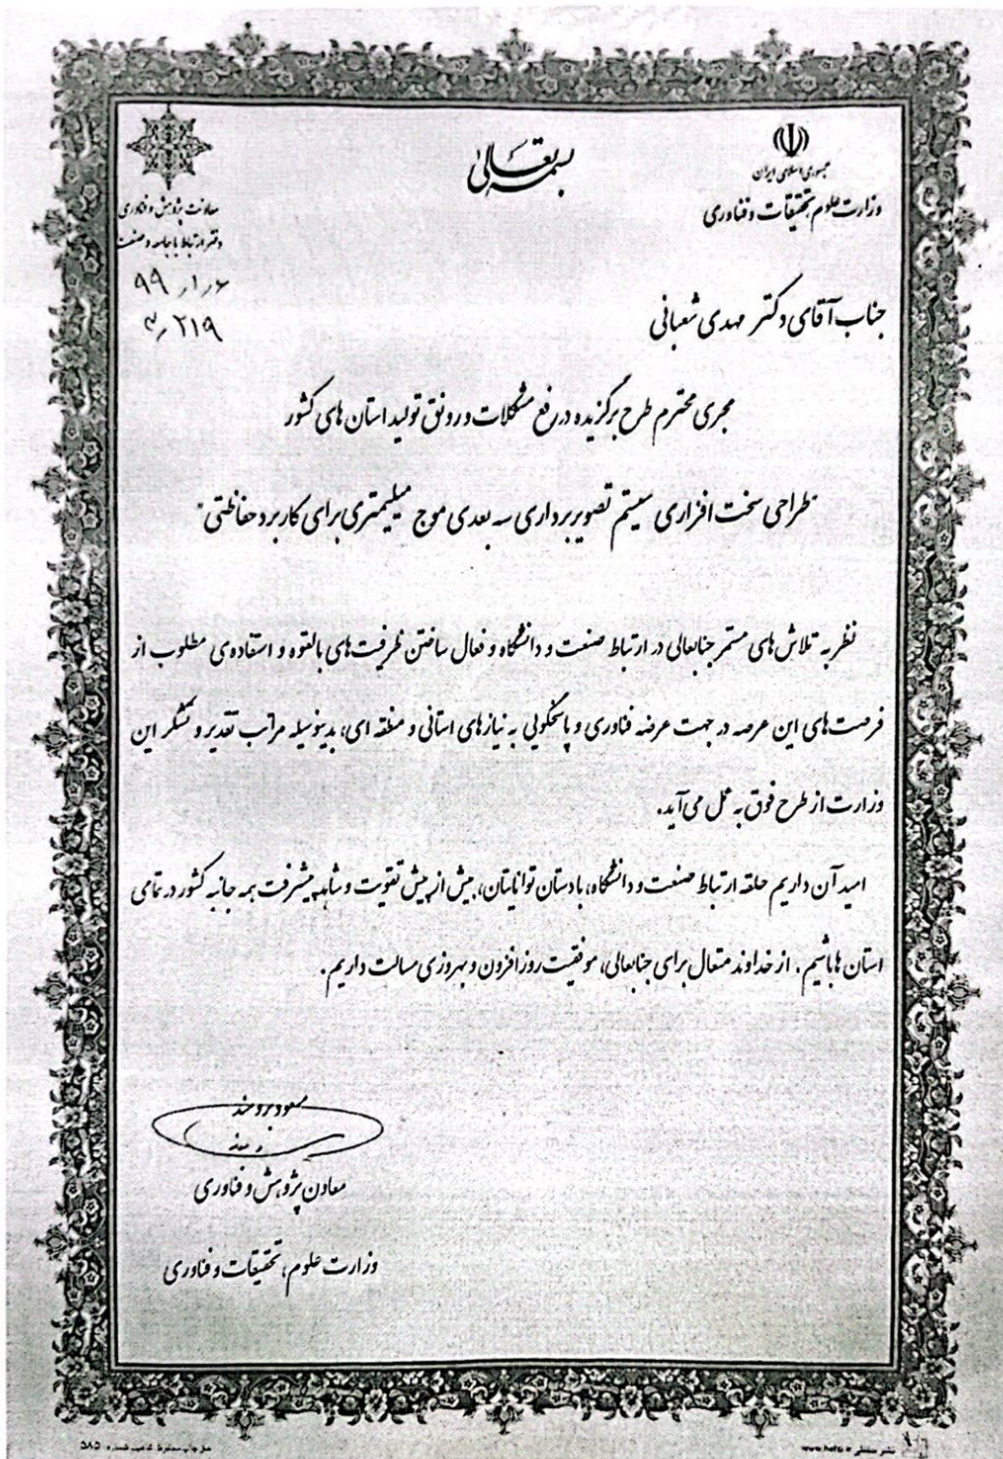 بسمه تعالی
جمهوری اسلامی ایران
وزارت علوم، تحقیقات و فناوری
معاونت پژوهش و فناوری
دفتر ارتباط با جامعه و صنعت
۹۹/۱/۶
۳/۲۱۹
جناب آقای دکتر مهدی شعبانی
مجری محترم طرح برگزیده در رفع مشکلات و رونق تولید استان های کشور
"طراحی سخت افزاری سیستم تصویربرداری سه بعدی موج میلیمتری برای کاربرد حفاظتی"
نظر به تلاش های مستمر جنابعالی در ارتباط صنعت و دانشگاه و فعال ساختن ظرفیت های بالقوه و استفاده ی مطلوب از
فرصت های این عرصه در جهت عرضه فناوری و پاسخگویی به نیازهای استانی و منطقه ای، بدینوسیله مراتب تقدیر و تشکر این
وزارت از طرح فوق به عمل می آید.
امید آن داریم حلقه ارتباط صنعت و دانشگاه، با دستان توانایتان، بیش از پیش تقویت و شاهد پیشرفت همه جانبه کشور در تمامی
استان ها باشیم. از خداوند متعال برای جنابعالی، موفقیت روز افزون و بهروزی مسالت داریم.
مسعود برومند
معاون پژوهش و فناوری
وزارت علوم، تحقیقات و فناوری